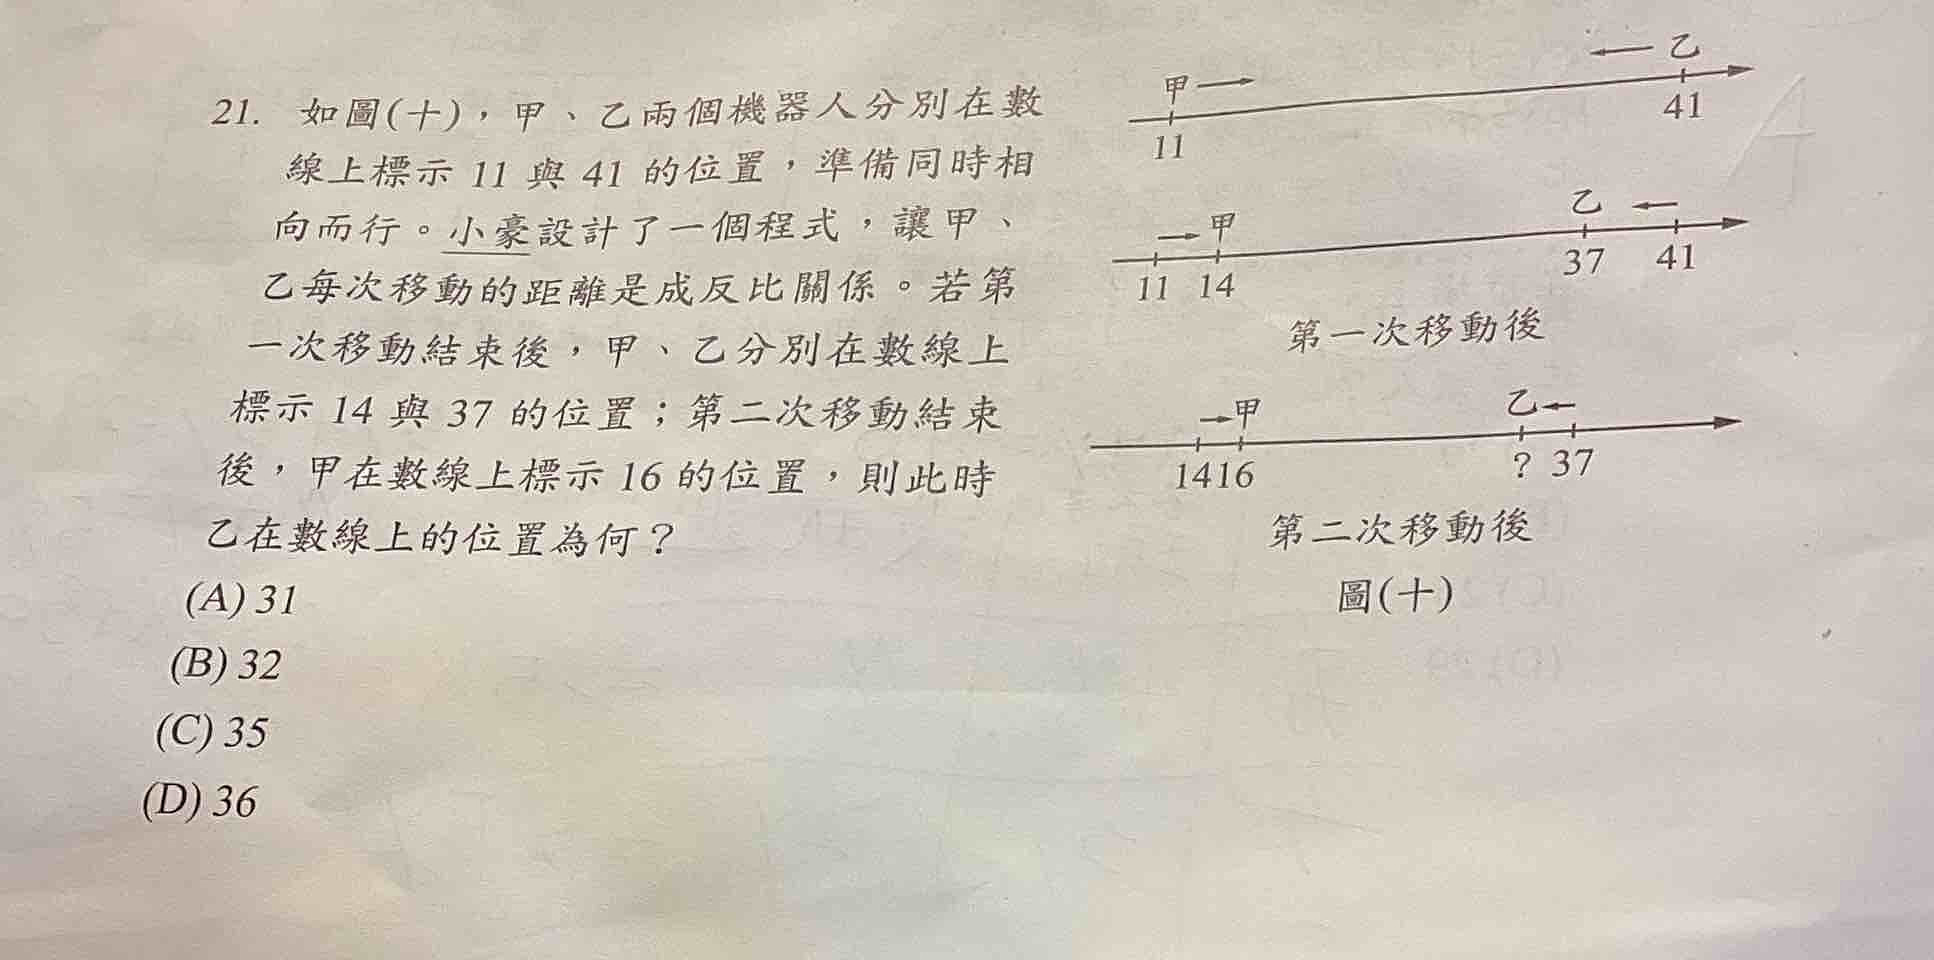 21. 如圖(十)，甲、乙兩個機器人分別在數
線上標示 11 與 41 的位置，準備同時相
向而行。小豪設計了一個程式，讓甲、
乙每次移動的距離是成反比關係。若第
一次移動結束後，甲、乙分別在數線上
標示 14 與 37 的位置；第二次移動結束
後，甲在數線上標示 16 的位置，則此時
乙在數線上的位置為何？
(A) 31
(B) 32
(C) 35
(D) 36
甲 乙
11 41
甲 乙
11 14 37 41
第一次移動後
甲 乙
14 16 ? 37
第二次移動後
圖(十)